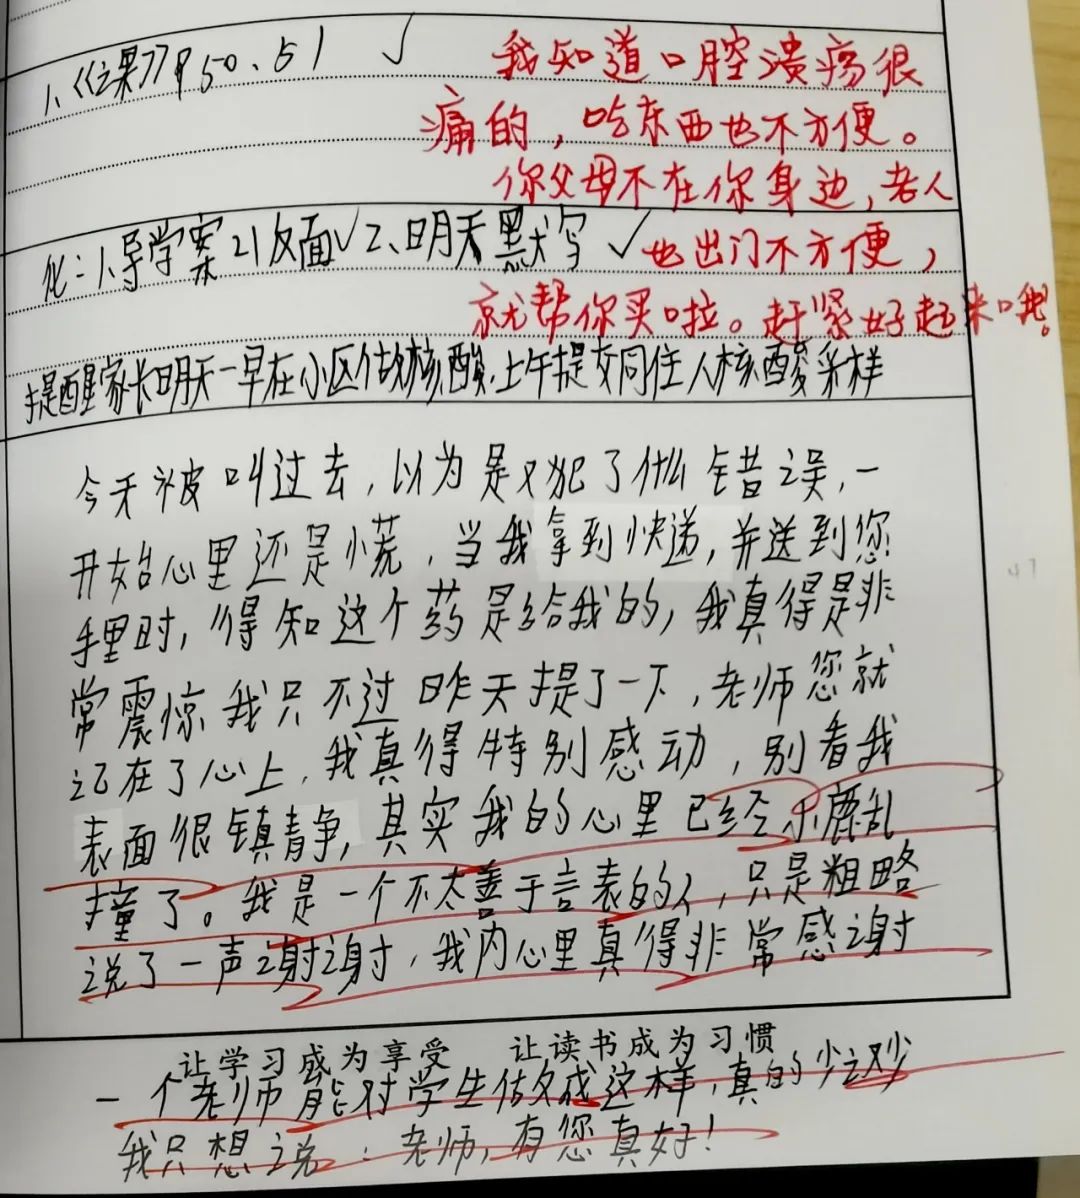 1、《课》P50、51 √
我知道口腔溃疡很
痛的，吃东西也不方便。
你父母不在你身边，老人
化：1、导学案21反面√2、明天默写 √
也出门不方便，
就帮你买啦。赶紧好起来哦。
提醒家长明天一早在小区做核酸，上午提交同住人核酸采样
今天被叫过去，以为是又犯了什么错误，一
开始心里还是小慌，当我拿到快递，并送到您
手里时，得知这个药是给我的，我真得是非
常震惊我只不过昨天提了一下，老师您就
记在了心上，我真得特别感动，别看我
表面很镇静，其实我的心里已经小鹿乱
撞了。我是一个不太善于言表的人，只是粗略
说了一声谢谢，我内心里真得非常感谢
让学习成为享受 让读书成为习惯
一个老师能对学生做成这样，真的少之又少
我只想说：老师，有您真好！
47